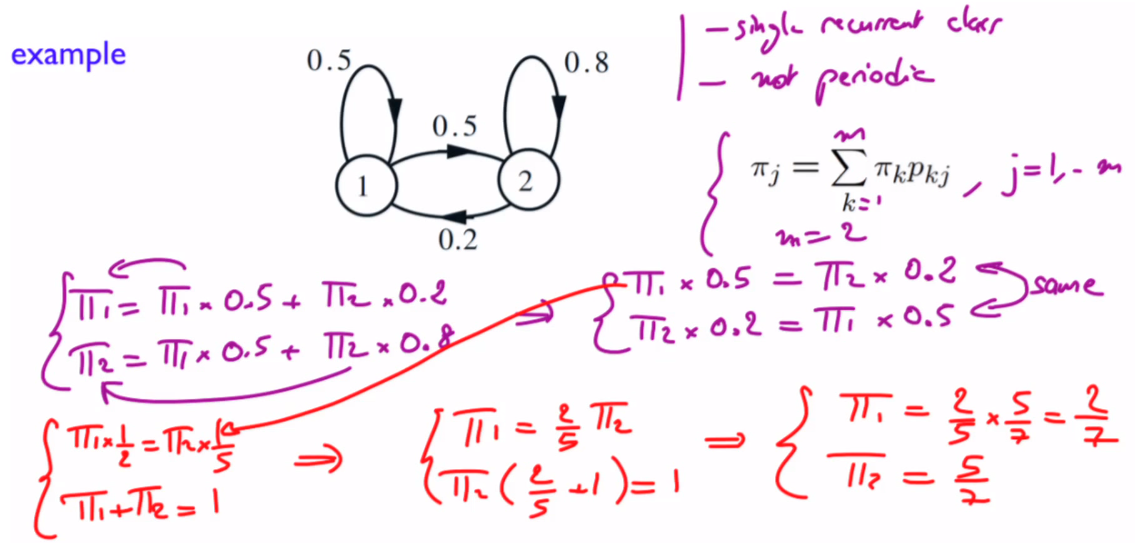 example
0.5
0.8
0.5
1
2
0.2
– single recurrent class
– not periodic
πj = Σ πk pkj , j=1,- m
m
k=1
m = 2
π1 = π1 × 0.5 + π2 × 0.2
π2 = π1 × 0.5 + π2 × 0.8
⇒
π1 × 0.5 = π2 × 0.2
π2 × 0.2 = π1 × 0.5
same
π1 × 1/2 = π2 × 1/5
π1 + π2 = 1
⇒
π1 = 2/5 π2
π2 ( 2/5 + 1 ) = 1
⇒
π1 = 2/5 × 5/7 = 2/7
π2 = 5/7